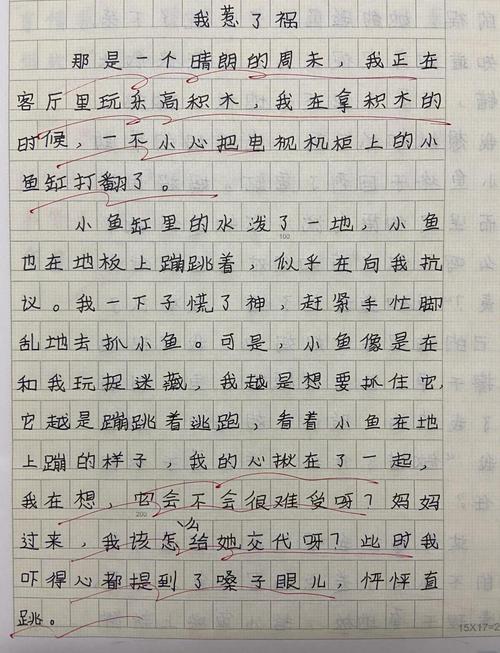 我惹了祸
那是一个晴朗的周末，我正在
客厅里玩乐高积木，我在拿积木的
时候，一不小心把电视机柜上的小
鱼缸打翻了。
小鱼缸里的水泼了一地，小鱼
100
也在地板上蹦跳着，似乎在向我抗
议。我一下子慌了神，赶紧手忙脚
乱地去抓小鱼。可是，小鱼像是在
和我玩捉迷藏，我越是想要抓住它，
它越是蹦跳着逃跑，看着小鱼在地
上蹦的样子，我的心揪在了一起，
我在想，它会不会很难受呀？妈妈
200
过来，我该怎么给她交代呀？此时我
吓得心都提到了嗓子眼儿，怦怦直
跳。
15X17=2